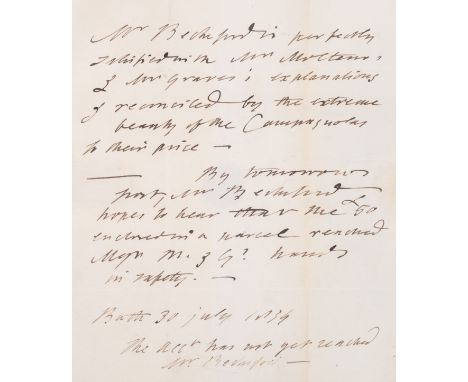 Mr Beckford is perfectly
satisfied with Mr Molteno's
& Mr Graves's explanations
& reconciled by the extreme
beauty of the Campagnolas
to their price —
— By tomorrows
post, Mr Beckford
hopes to hear that the £50
enclosed in a parcel reached
Messrs M. & G's hands
in safety. —
Bath 30 July 1834
The acct has not yet reached
Mr Beckford —